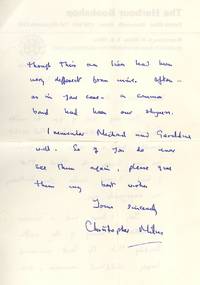 The Harbour Bookshop
though their own lives had been
very different from mine. Often –
as in your case – a common
bond had been our shyness.
I remember Michael and Geraldine
well. So if you do ever
see them again, please give
them my best wishes
Yours sincerely
Christopher Milne